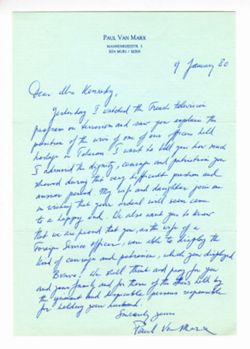 PAUL VAN MARX
MANNENRIEDSTR. 3
3074 MURI / BERN
9 January 80
Dear Mrs Kennedy,
Yesterday I watched the French television
program on terrorism and saw you explain the
position of the wife of one of our officers held
hostage in Teheran. I want to tell you how much
I admired the dignity, courage and patriotism you
showed during this very difficult question and
answer period. My wife and daughters join me
in wishing that your ordeal will soon come
to a happy end. We also want you to know
that we are proud that you, as the wife of a
Foreign Service officer, were able to display the
kind of courage and patience, which you displayed
Bravo! We will think and pray for you
and your family and for those of the others held by
the and despicable persons responsible
for holding your husband.
Sincerely yours
Paul Van Marx